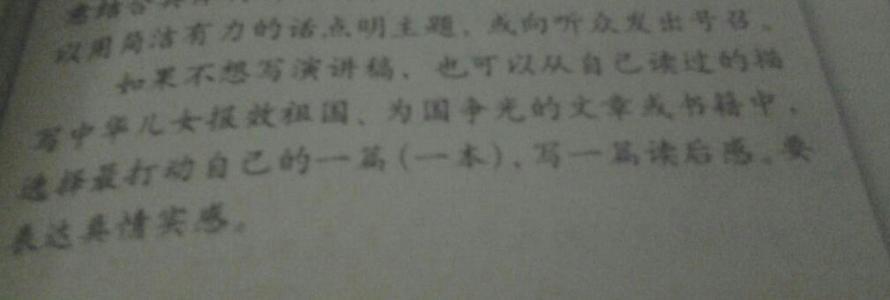 意结合具体
以用简洁有力的话点明主题,或向听众发出号召。
如果不想写演讲稿,也可以从自己读过的描
写中华儿女报效祖国、为国争光的文章或书籍中,
选择最打动自己的一篇(一本),写一篇读后感。要
表达真情实感。